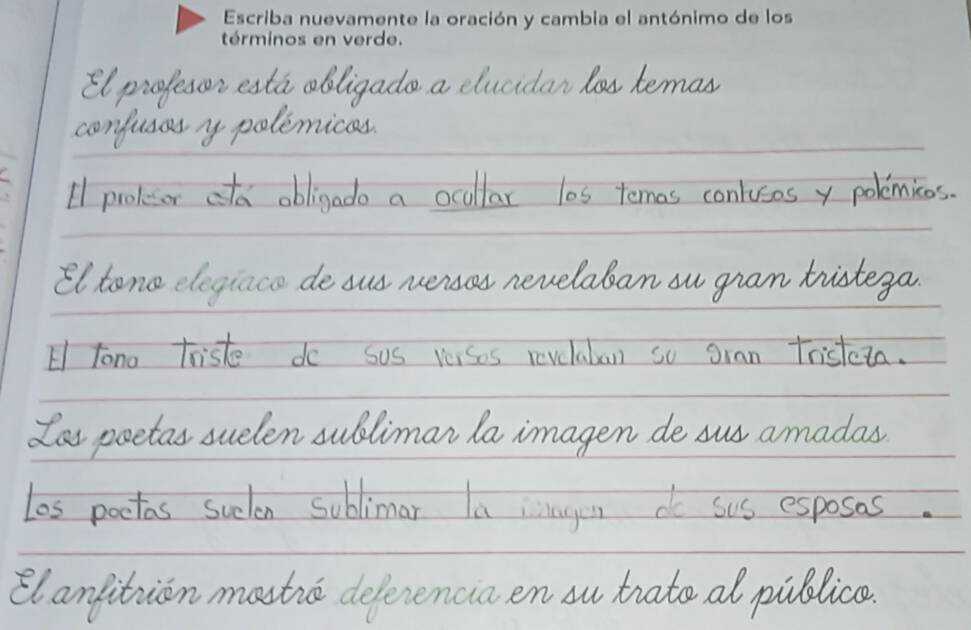 Escriba nuevamente la oración y cambia el antónimo de los
términos en verde.
El profesor está obligado a elucidar los temas
confusos y polémicos.
El profesor está obligado a ocultar los temas confusos y polémicos.
El tono elegíaco de sus versos revelaban su gran tristeza.
El tono triste de sus versos revelaban su gran tristeza.
Los poetas suelen sublimar la imagen de sus amadas.
Los poetas suelen sublimar la imagen de sus esposas.
El anfitrión mostró deferencia en su trato al público.